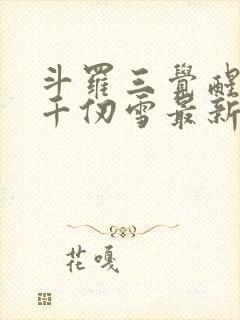 斗羅三覺醒
千仞雪最新
花嘎